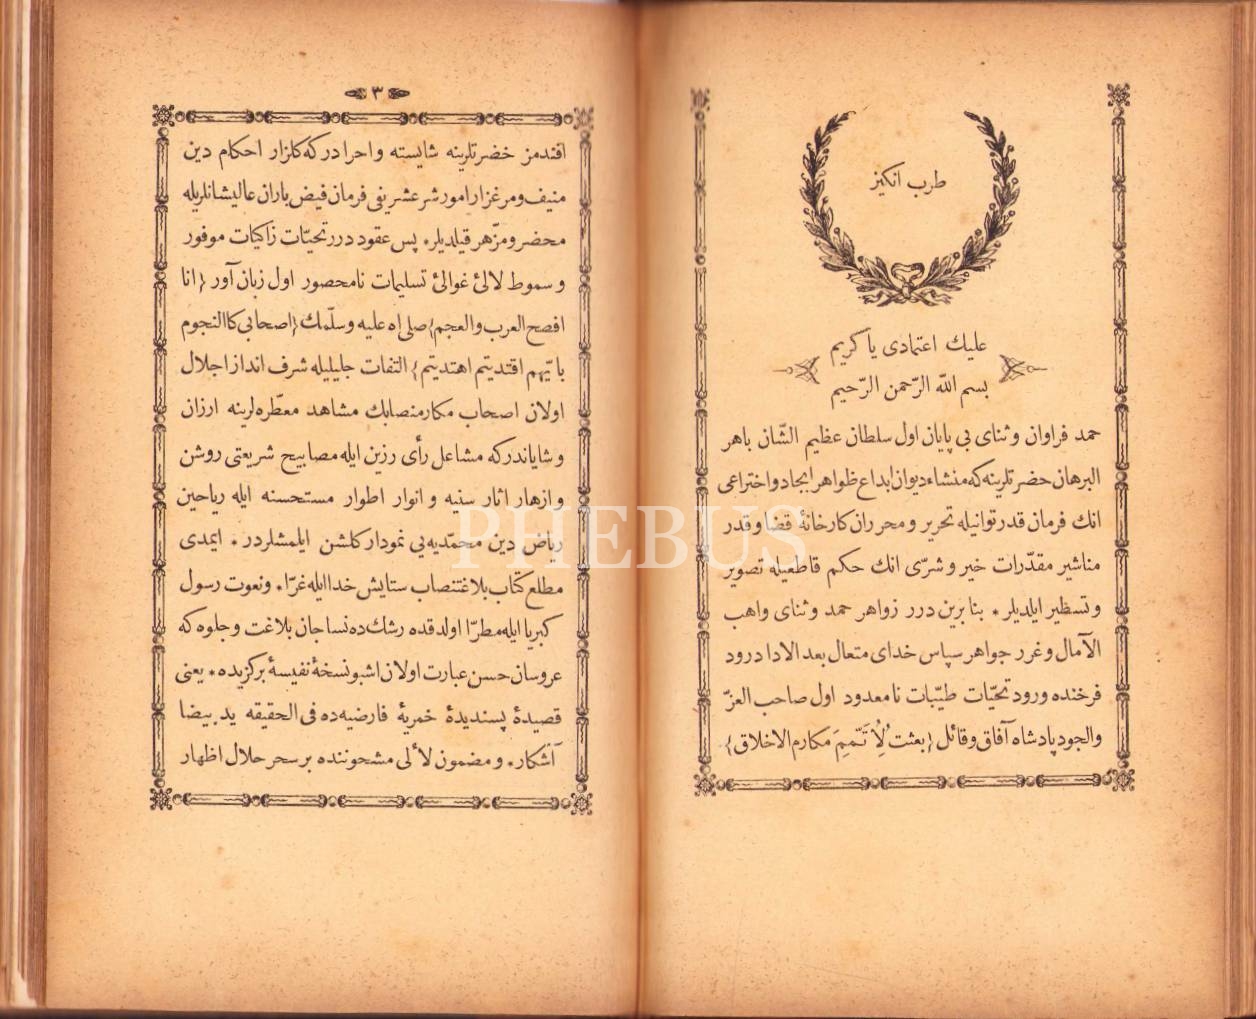 طرب انكيز
عليك اعتمادى يا كريم
بسم الله الرّحمن الرّحيم
حمد فراوان و ثناى بى پايان اول سلطان عظيم الشّان باهر
البرهان حضرتلرينه كه منشاء ديوان ابداع ظواهر ايجاد و اختراعى
انك فرمان قدر توانيله تحرير و محرران كارخانهٔ قضا و قدر
مناشير مقدّرات خير و شرّى انك حكم قاطعيله تصوير
و تسطير ايلديلر • بنا برين درر زواهر حمد و ثناى واهب
الآمال و غرر جواهر سپاس خداى متعال بعد الادا درود
فرخنده ورود تحيّات طيّبات نامعدود اول صاحب العزّ
والجود پادشاه آفاق و قائل {بعثت لِاُتَمِّمَ مكارم الاخلاق}
٣
افندمز حضرتلرينه شايسته و احرادر كه كلزار احكام دين
منيف و مرغزار امور شرعشريفى فرمان فيض باران عاليشانلريله
محضر و مزّهر قيلديلر • پس عقود درر تحيّات زاكيات موفور
و سموط لالئ غوالئ تسليمات نامحصور اول زبان آور {انا
افصح العرب والعجم} صلى اه عليه و سلّمك {اصحابى كاالنجوم
بايّهم اقتديتم اهتديتم} التفات جليليله شرف انداز اجلال
اولان اصحاب مكارمنصابك مشاهد معطّره لرينه ارزان
و شاياندر كه مشاعل رأى رزين ايله مصابيح شريعتى روشن
و ازهار اثار سنيه و انوار اطوار مستحسنه ايله رياحين
رياض دين محمّديه يى نمودار كلشن ايلمشلردر • ايمدى
مطلع كتاب بلاغتنصاب ستايش خدا ايله غرّا • و نعوت رسول
كبريا ايله مطرّا اولدقده رشك ده نساجان بلاغت و جلوه كه
عروسان حسن عبارت اولان اشبو نسخهٔ نفيسهٔ بركزيده • يعنى
قصيدهٔ پسنديدهٔ خمريهٔ فارضيه ده فى الحقيقه يد بيضا
آشكار • و مضمون لآلى مشحوننده بر سحر حلال اظهار
PHEBUS